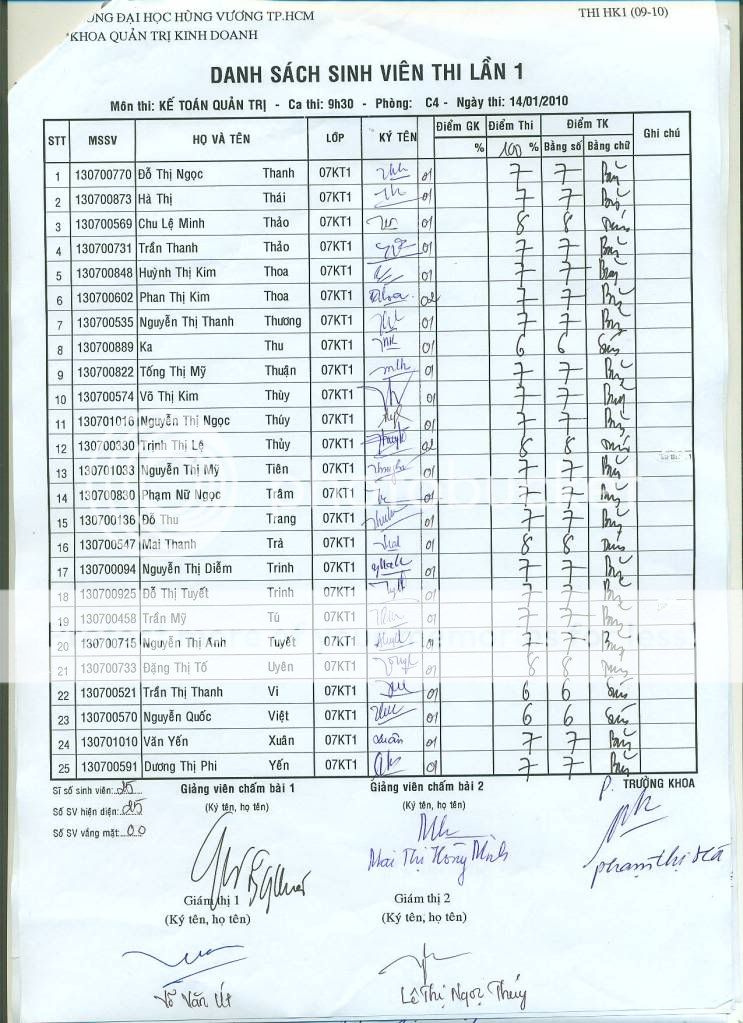 ỜNG ĐẠI HỌC HÙNG VƯƠNG TP.HCM
THI HK1 (09-10)
KHOA QUẢN TRỊ KINH DOANH
DANH SÁCH SINH VIÊN THI LẦN 1
Môn thi: KẾ TOÁN QUẢN TRỊ - Ca thi: 9h30 - Phòng: C4 - Ngày thi: 14/01/2010
STT MSSV HỌ VÀ TÊN LỚP KÝ TÊN Điểm GK Điểm Thi Điểm TK Ghi chú
% 100 % Bằng số Bằng chữ
1 130700770 Đỗ Thị Ngọc Thanh 07KT1 01 7 7 Bảy
2 130700873 Hà Thị Thái 07KT1 01 7 7 Bảy
3 130700569 Chu Lệ Minh Thảo 07KT1 01 8 8 Tám
4 130700731 Trần Thanh Thảo 07KT1 01 7 7 Bảy
5 130700848 Huỳnh Thị Kim Thoa 07KT1 01 7 7 Bảy
6 130700602 Phan Thị Kim Thoa 07KT1 Thoa 02 7 7 Bảy
7 130700535 Nguyễn Thị Thanh Thương 07KT1 01 7 7 Bảy
8 130700889 Ka Thu 07KT1 01 6 6 Sáu
9 130700822 Tống Thị Mỹ Thuận 07KT1 01 7 7 Bảy
10 130700574 Võ Thị Kim Thùy 07KT1 01 7 7 Bảy
11 130701016 Nguyễn Thị Ngọc Thúy 07KT1 01 7 7 Bảy
12 130700330 Trịnh Thị Lệ Thủy 07KT1 02 8 8 Tám
13 130701033 Nguyễn Thị Mỹ Tiên 07KT1 01 7 7 Bảy
14 130700830 Phạm Nữ Ngọc Trâm 07KT1 01 7 7 Bảy
15 130700136 Đỗ Thu Trang 07KT1 01 7 7 Bảy
16 130700547 Mai Thanh Trà 07KT1 01 8 8 Tám
17 130700094 Nguyễn Thị Diễm Trinh 07KT1 01 7 7 Bảy
18 130700925 Đỗ Thị Tuyết Trinh 07KT1 01 7 7 Bảy
19 130700458 Trần Mỹ Tú 07KT1 01 7 7 Bảy
20 130700715 Nguyễn Thị Ánh Tuyết 07KT1 01 7 7 Bảy
21 130700733 Đặng Thị Tố Uyên 07KT1 01 8 8 Tám
22 130700521 Trần Thị Thanh Vi 07KT1 01 6 6 Sáu
23 130700570 Nguyễn Quốc Việt 07KT1 01 6 6 Sáu
24 130701010 Văn Yến Xuân 07KT1 Xuân 01 7 7 Bảy
25 130700591 Dương Thị Phi Yến 07KT1 01 7 7 Bảy
Sĩ số sinh viên: 25 Giảng viên chấm bài 1 Giảng viên chấm bài 2 P. TRƯỞNG KHOA
Số SV hiện diện: 25 (Ký tên, họ tên) (Ký tên, họ tên)
Số SV vắng mặt: 00
Mai Thị Hồng Minh
Phạm Thị Hà
Giám thị 1 Giám thị 2
(Ký tên, họ tên) (Ký tên, họ tên)
Võ Văn Út Lê Thị Ngọc Thúy